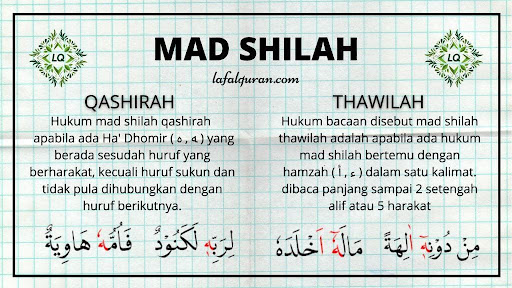 MAD SHILAH
LQ
LQ
lafalquran.com
QASHIRAH
Hukum mad shilah qashirah
apabila ada Ha' Dhomir ( ه , ـه ) yang
berada sesudah huruf yang
berharakat, kecuali huruf sukun dan
tidak pula dihubungkan dengan
huruf berikutnya.
لِرَبِّهٖ لَكَنُوْدٌ فَاُمُّهٗ هَاوِيَةٌ
THAWILAH
Hukum bacaan disebut mad shilah
thawilah adalah apabila ada hukum
mad shilah bertemu dengan
hamzah ( أ , ء ) dalam satu kalimat.
dibaca panjang sampai 2 setengah
alif atau 5 harakat
مِنْ دُوْنِهٖٓ اٰلِهَةً مَالَهٗٓ اَخْلَدَهٗ